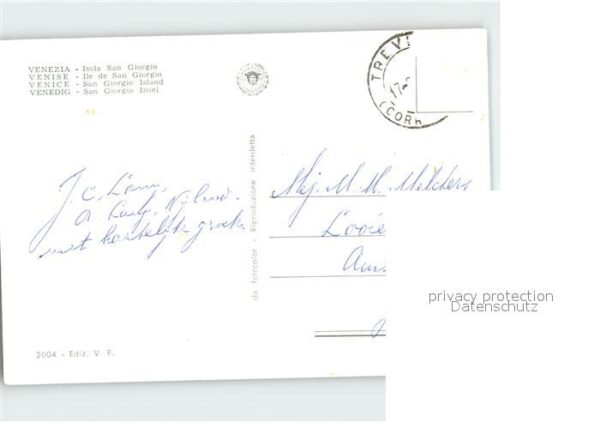 VENEZIA - Isola San Giorgio
VENISE - Ile de San Giorgio
VENICE - San Giorgio Island
VENEDIG - San Giorgio Insel
TREVI
17
(CORR
J. C.
met hartelijke groeten
da fotocolor - Riproduzione interdetta
Mej. M. M. Melchers
Looie
Ams
2004 - Ediz. V. F.
privacy protection
Datenschutz